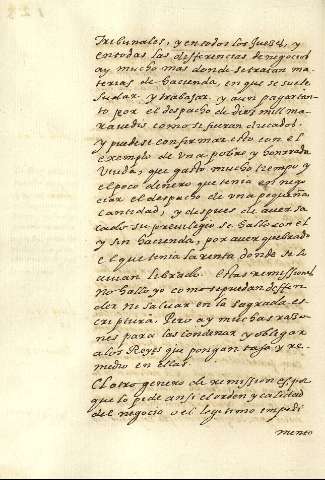 Tribunales, y en todos los Jueses, y
en todas las differencias de negocios
ay mucho mas donde se tratan ma
terias de hacienda, en que se suele
sudar y trabajar, y aun pagar tan
to por el despacho de diez mill ma
ravedis como si fueran ducados.
y puedese confirmar esto con el
exemplo de vna pobre y honrrada
viuda, que gastó mucho tiempo y
el poco dinero que tenia en nego
ciar el despacho de vna pequeña
cantidad, y despues de auer sa
cado su preuilegio se halló con el
y sin hacienda, por auer quebrado
el que tenia la renta donde se lo
auian librado. Estas remissiones
no hallo yo como se puedan deffen
der ni saluar en la sagrada es
criptura. Pero ay muchas raço
nes para las condenar y obligar
a los Reyes que pongan tasa y re
medio en ellas.
El otro genero de remission es, por
que lo pide ansi el orden y calidad
del negocio o el legitimo impedi
mento